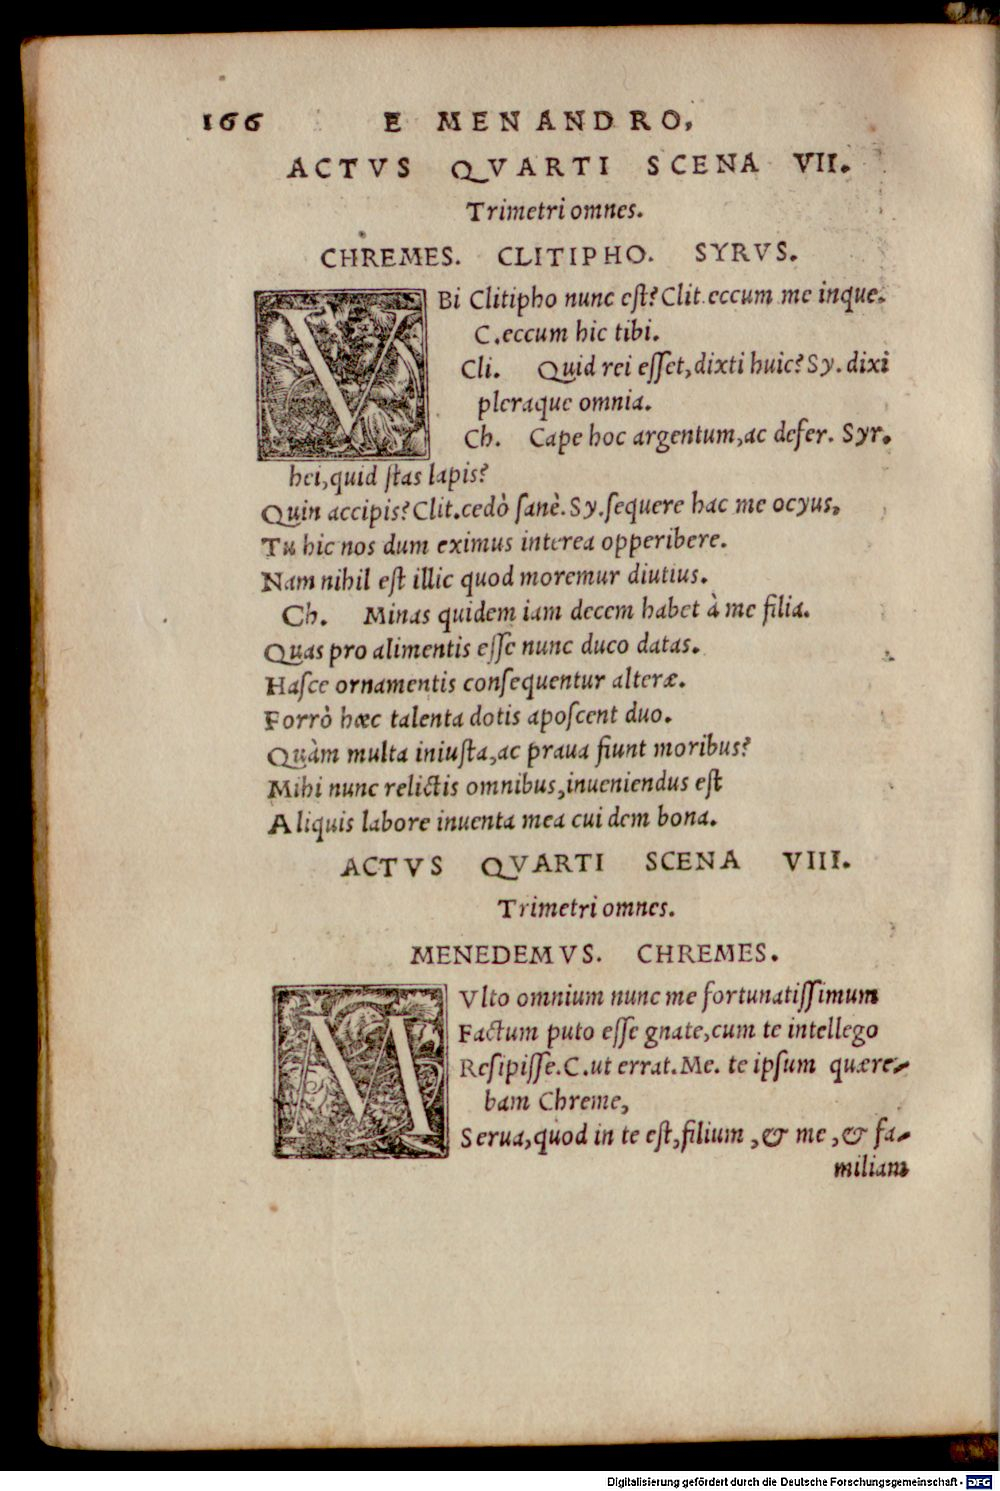 166 E MENANDRO,
ACTVS QVARTI SCENA VII.
Trimetri omnes.
CHREMES. CLITIPHO. SYRVS.
VBi Clitipho nunc eſt? Clit. eccum me inque.
C. eccum hic tibi.
Cli. Quid rei eſſet, dixti huic? Sy. dixi
pleraque omnia.
Ch. Cape hoc argentum, ac defer. Syr.
hei, quid ſtas lapis?
Quin accipis? Clit. cedò ſanè. Sy. ſequere hac me ocyus.
Tu hic nos dum eximus interea opperibere.
Nam nihil eſt illic quod moremur diutius.
Ch. Minas quidem iam decem habet à me filia.
Quas pro alimentis eſſe nunc duco datas.
Haſce ornamentis conſequentur alteræ.
Forrò hæc talenta dotis apoſcent duo.
Quàm multa iniuſta, ac praua fiunt moribus?
Mihi nunc relictis omnibus, inueniendus eſt
Aliquis labore inuenta mea cui dem bona.
ACTVS QVARTI SCENA VIII.
Trimetri omnes.
MENEDEMVS. CHREMES.
MVlto omnium nunc me fortunatiſſimum
Factum puto eſſe gnate, cum te intellego
Reſipiſſe. C. ut errat. Me. te ipſum quære-
bam Chreme,
Serua, quod in te eſt, filium, & me, & fa-
miliam
Digitalisierung gefördert durch die Deutsche Forschungsgemeinschaft - DFG